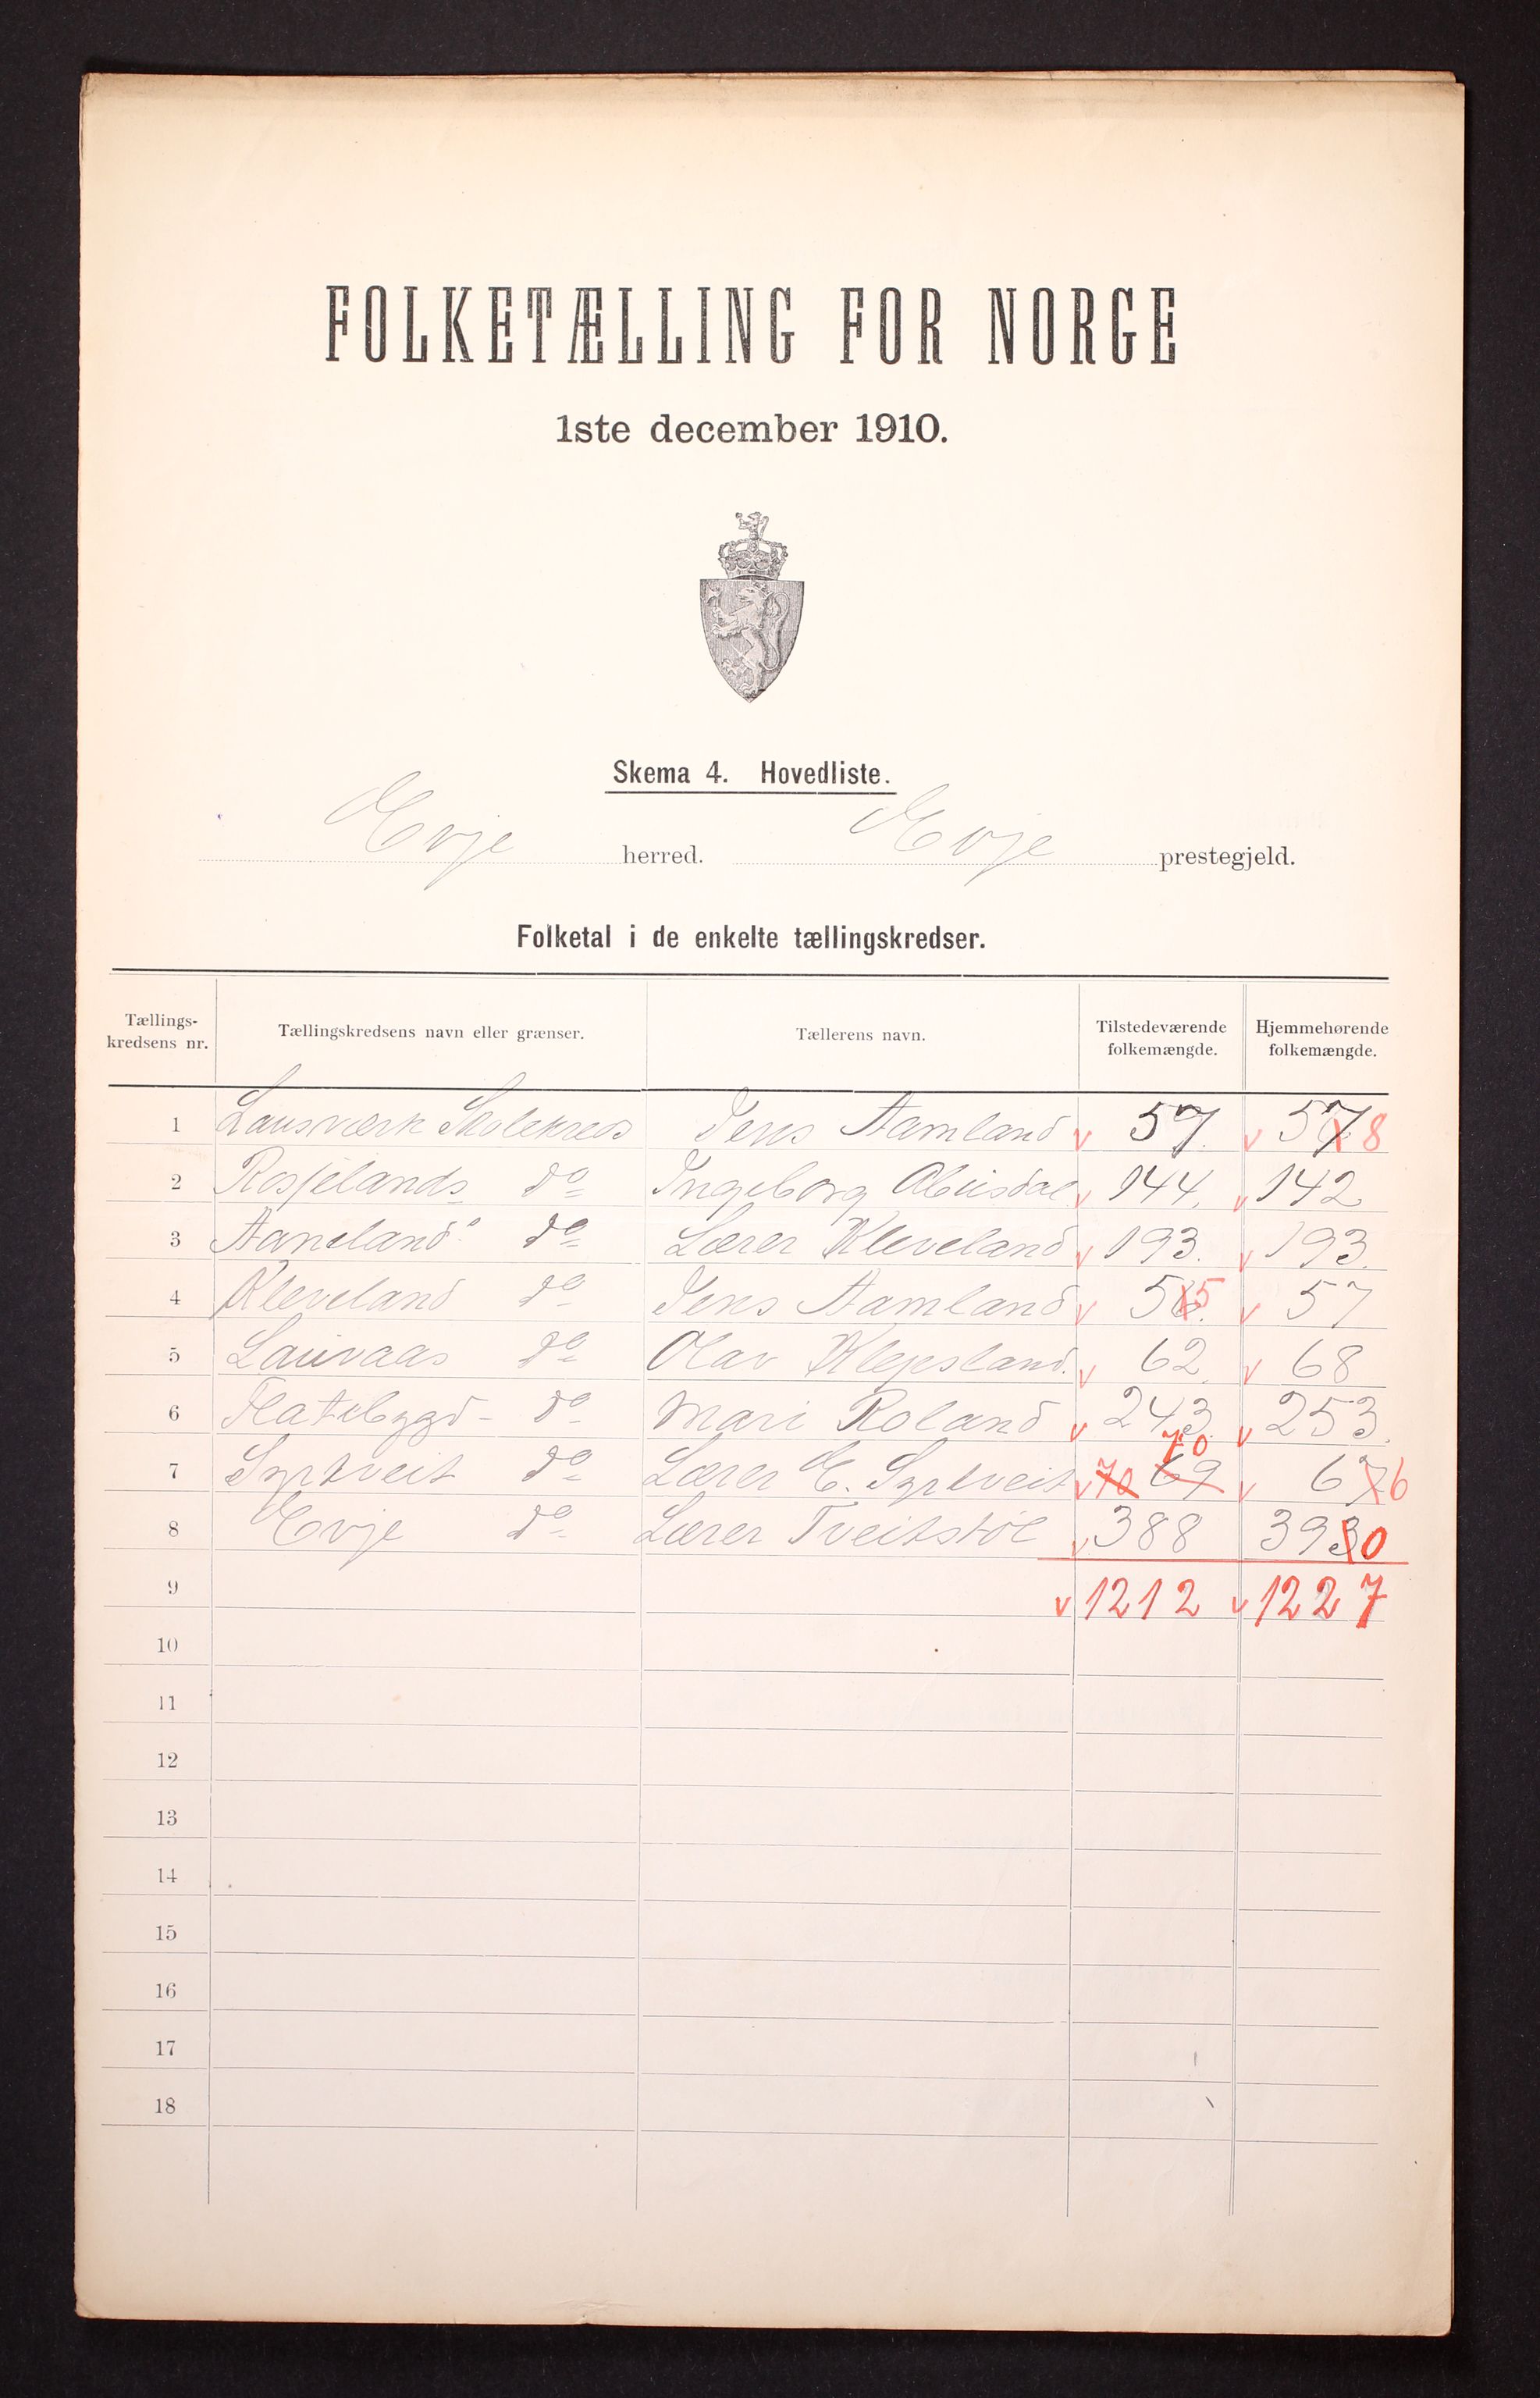 FOLKETÆLLING FOR NORGE
1ste december 1910.
Skema 4. Hovedliste.
Evje herred. Evje prestegjeld.
Folketal i de enkelte tællingskredser.
Tællings-kredsens nr. Tællingskredsens navn eller grænser. Tællerens navn. Tilstedeværende folkemængde. Hjemmehørende folkemængde.
1 Lausværk Skolekreds Jens Aamland v 57. v 57 8
2 Rosselands do Ingeborg Abusdal v 144. v 142
3 Aaneland's do Lærer Kleveland v 193. v 193.
4 Kleveland do Jens Aamland v 56. 5 v 57
5 Lauvaas do Olav Klepsland. v 62. v 68
6 Flatebygd- do Mari Roland v 243. v 253.
7 Syrtveit do Lærer E. Syrtveit v 70 69 70 v 67 6
8 Evje do Lærer Tveitstøl v 388 393 0
9 v 1212 v 1227
10
11
12
13
14
15
16
17
18